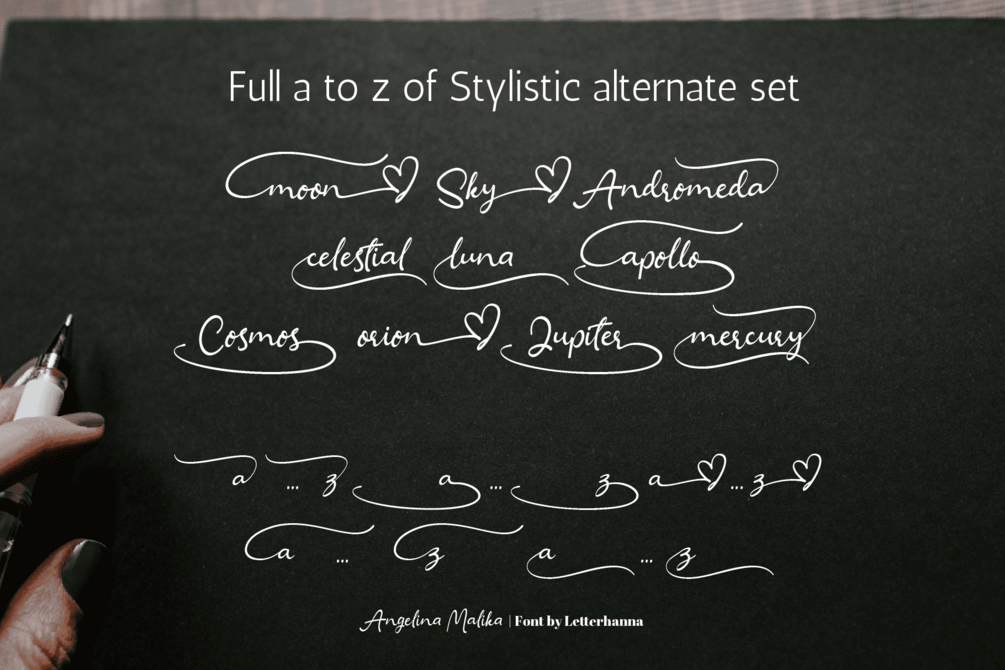 Full a to z of Stylistic alternate set
moon Sky Andromeda
celestial luna apollo
Cosmos orion Jupiter mercury
a ... z a ... z a ... z
a ... z a ... z
Angelina Malika | Font by Letterhanna